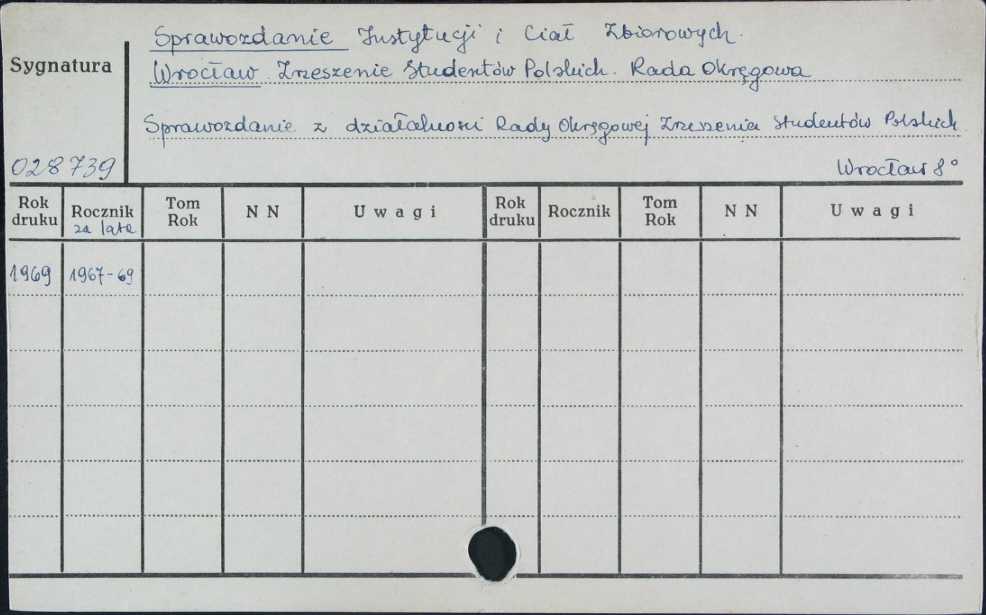 Sprawozdanie Instytucji i Ciał Zbiorowych.
Sygnatura
Wrocław. Zrzeszenie Studentów Polskich. Rada Okręgowa
Sprawozdanie z działalności Rady Okręgowej Zrzeszenia Studentów Polskich
028739
Wrocław 8°
Rok druku Rocznik za lata Tom Rok N N Uwagi Rok druku Rocznik Tom Rok N N Uwagi
1969 1967-69